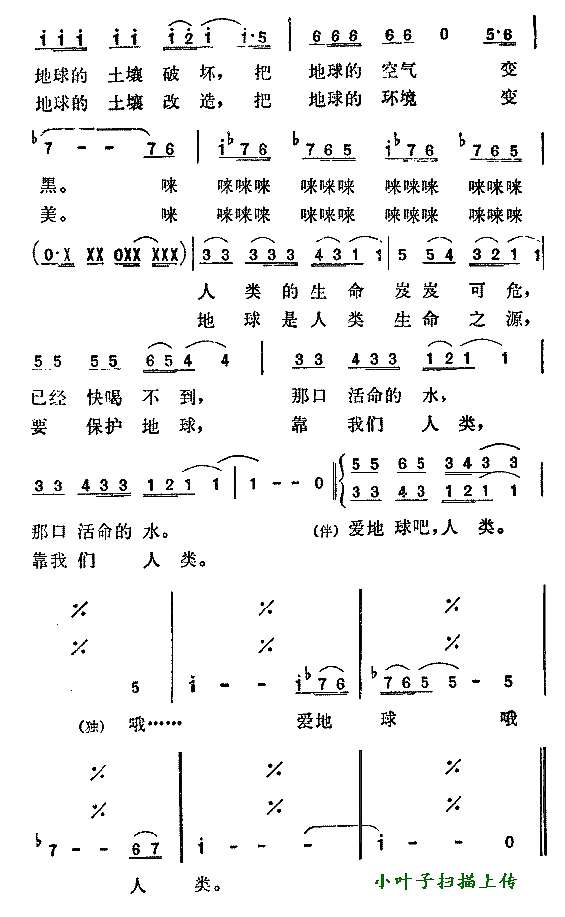 i i i i i i 2 i i·5 | 6 6 6 6 6 0 5·6 |
地球的 土壤 破 坏，把 地球的 空气 变
地球的 土壤 改 造，把 地球的 环境 变
♭7 - - 7 6 | i ♭7 6 ♭7 6 5 i ♭7 6 ♭7 6 5 |
黑。 咪 咪咪咪 咪咪咪 咪咪咪 咪咪咪
美。 咪 咪咪咪 咪咪咪 咪咪咪 咪咪咪
(0·X XX 0XX XXX) | 3 3 3 3 3 4 3 1 1 | 5 5 4 3 2 1 1 |
人 类 的 生 命 岌 岌 可 危，
地 球 是 人 类 生 命 之 源，
5 5 5 5 6 5 4 4 | 3 3 4 3 3 1 2 1 1 |
已经 快喝 不 到， 那口 活命的 水，
要 保护 地 球， 靠 我们 人 类，
3 3 4 3 3 1 2 1 1 | 1 - - 0 ‖ 5 5 6 5 3 4 3 3
3 3 4 3 1 2 1 1
那口 活命的 水。 (伴) 爱地 球吧，人 类。
靠我 们 人 类。
٪ | ٪ | ٪ |
٪ | ٪ | ٪ |
5 | i - - i ♭7 6 | ♭7 6 5 5 - 5 |
(独) 哦…… 爱地 球 哦
٪ | ٪ | ٪ ‖
٪ | ٪ | ٪ ‖
♭7 - - 6 7 | i - - i | i - - 0 ‖
人 类。
小叶子扫描上传